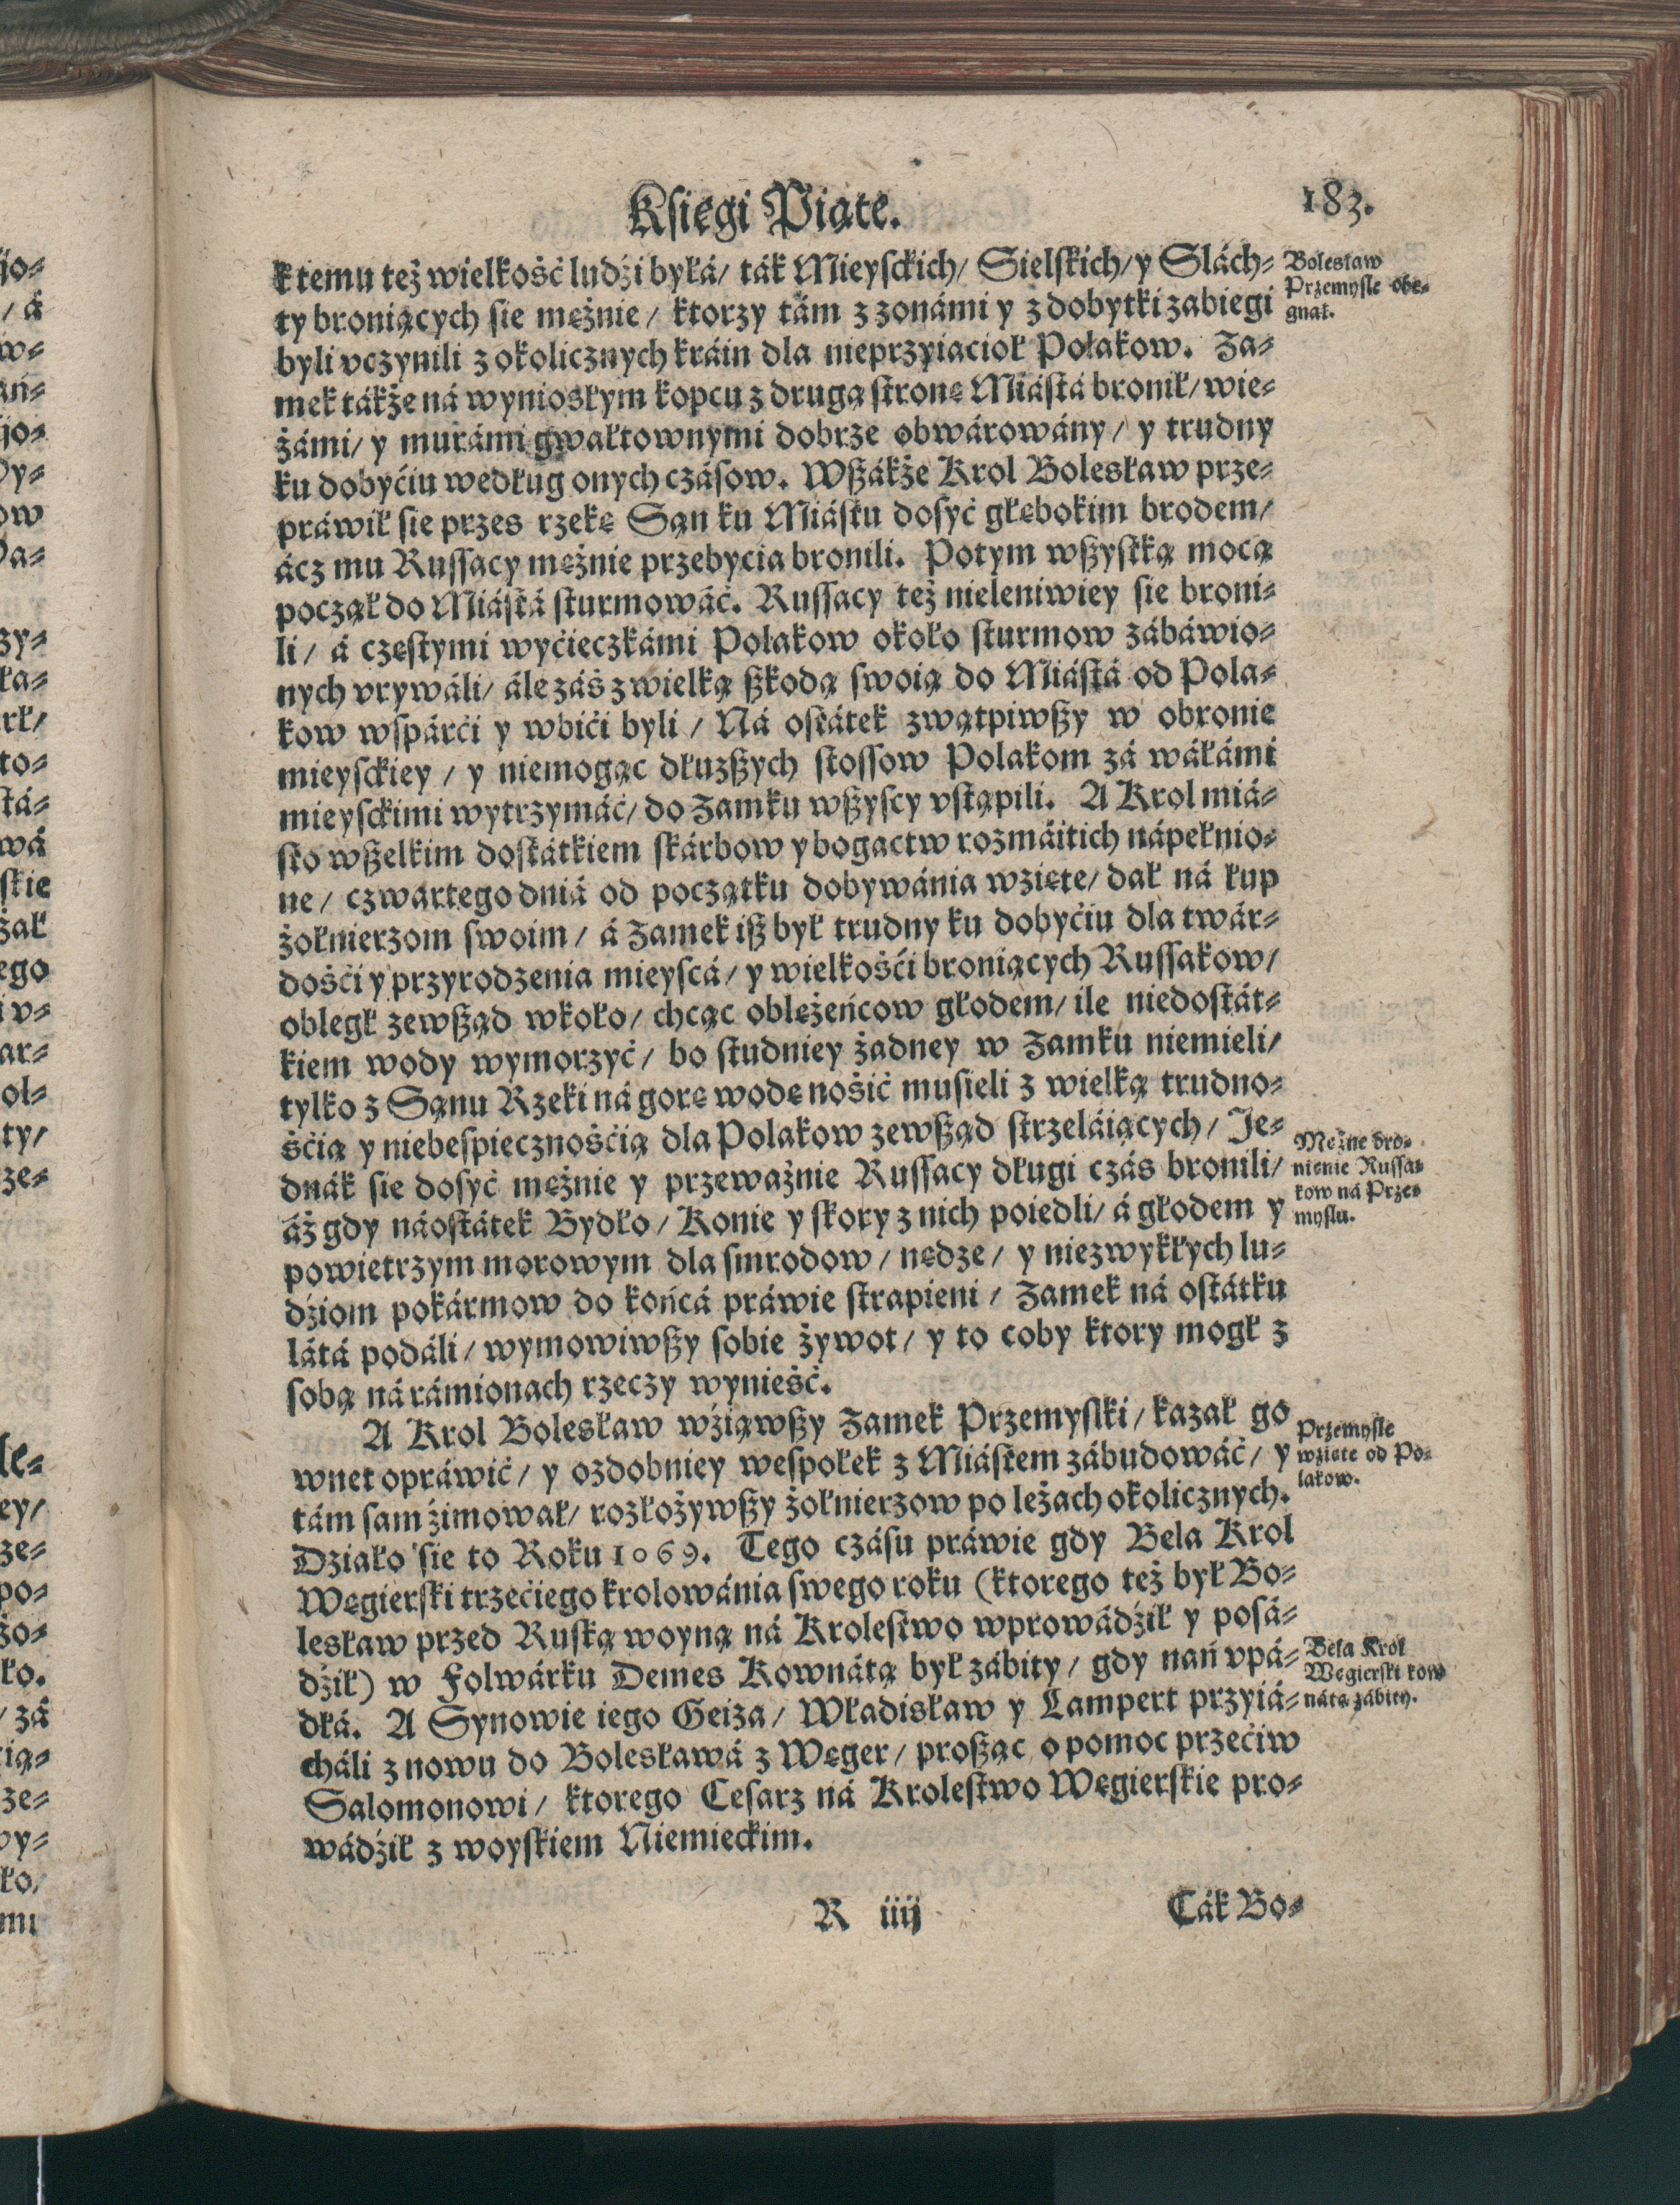 Księgi Piąte.
183.
k temu też wielkość ludźi byłá/ ták Mieysckich/ Sielskich/ y Slách-
ty broniących sie mężnie/ ktorzy tám z zonámi y z dobytki zabiegi
byli vczynili z okolicznych kráin dla nieprzyiacioł Polakow. Za-
mek tákże ná wyniosłym kopcu z drugą stronę Miástá bronił/ wie-
żámi/ y murámi gwałtownymi dobrze obwárowány/ y trudny
ku dobyćiu według onych czásow. Wßákże Krol Bolesław prze-
práwił sie przes rzekę Sąn ku Miástu dosyć głębokim brodem/
ácz mu Russacy mężnie przebycia bronili. Potym wßystką mocą
począł do Miástá sturmowáć. Russacy też nieleniwiey sie broni-
li/ á częstymi wyćieczkámi Polakow około sturmow zábáwio-
nych vrywáli/ ále záś z wielką ßkodą swoią do Miástá od Pola-
kow wspárći y wbići byli/ Ná ostátek zwątpiwßy w obronie
mieysckiey/ y niemogąc dłuzßych stossow Polakom zá wáłámi
mieysckimi wytrzymáć/ do Zamku wßyscy vstąpili. A Krol miá-
sto wßelkim dostátkiem skárbow y bogactw rozmáitich nápełnio-
ne/ czwartego dniá od początku dobywánia wzięte/ dał ná łup
żołnierzom swoim/ á Zamek iß był trudny ku dobyćiu dla twár-
dośći y przyrodzenia mieyscá/ y wielkośći broniących Russakow/
obległ zewßąd wkoło/ chcąc oblężeńcow głodem/ ile niedostát-
kiem wody wymorzyć/ bo studniey żadney w Zamku niemieli/
tylko z Sąnu Rzeki ná gorę wodę nośić musieli z wielką trudno-
śćią y niebespiecznośćią dla Polakow zewßąd strzeláiących/ Je-
dnák sie dosyć mężnie y przeważnie Russacy długi czás bronili/
áż gdy náostátek Bydło/ Konie y skory z nich poiedli/ á głodem y
powietrzym morowym dla smrodow/ nędze/ y niezwykłych lu-
dźiom pokármow do końcá práwie strapieni/ Zamek ná ostátku
látá podáli/ wymowiwßy sobie żywot/ y to coby ktory mogł z
sobą ná rámionach rzeczy wynieść.
A Krol Bolesław wźiąwßy Zamek Przemyslki/ kazał go
wnet opráwić/ y ozdobniey wespołek z Miástem zábudowáć/ y
tám sam źimował/ rozłożywßy żołnierzow po leżach okolicznych.
Działo sie to Roku 1069. Tego czásu práwie gdy Bela Krol
Węgierski trzećiego krolowánia swego roku (ktorego też był Bo-
lesław przed Ruską woyną ná Krolestwo wprowádźił y posá-
dźił) w Folwárku Demes Kownátą był zábity/ gdy nań vpá-
dłá. A Synowie iego Geiza/ Władisław y Lampert przyiá-
cháli z nowu do Bolesławá z Węger/ proßąc o pomoc przećiw
Salomonowi/ ktorego Cesarz ná Krolestwo Węgierskie pro-
wádźił z woyskiem Niemieckim.
Bolesław
Przemysle obe-
gnał.
Mężne bro-
nienie Russa-
kow ná Prze-
myslu.
Przemysle
wzięte od Po-
lakow.
Bela Krol
Węgierski kow
nátą zábity.
R iiij
Ták Bo-